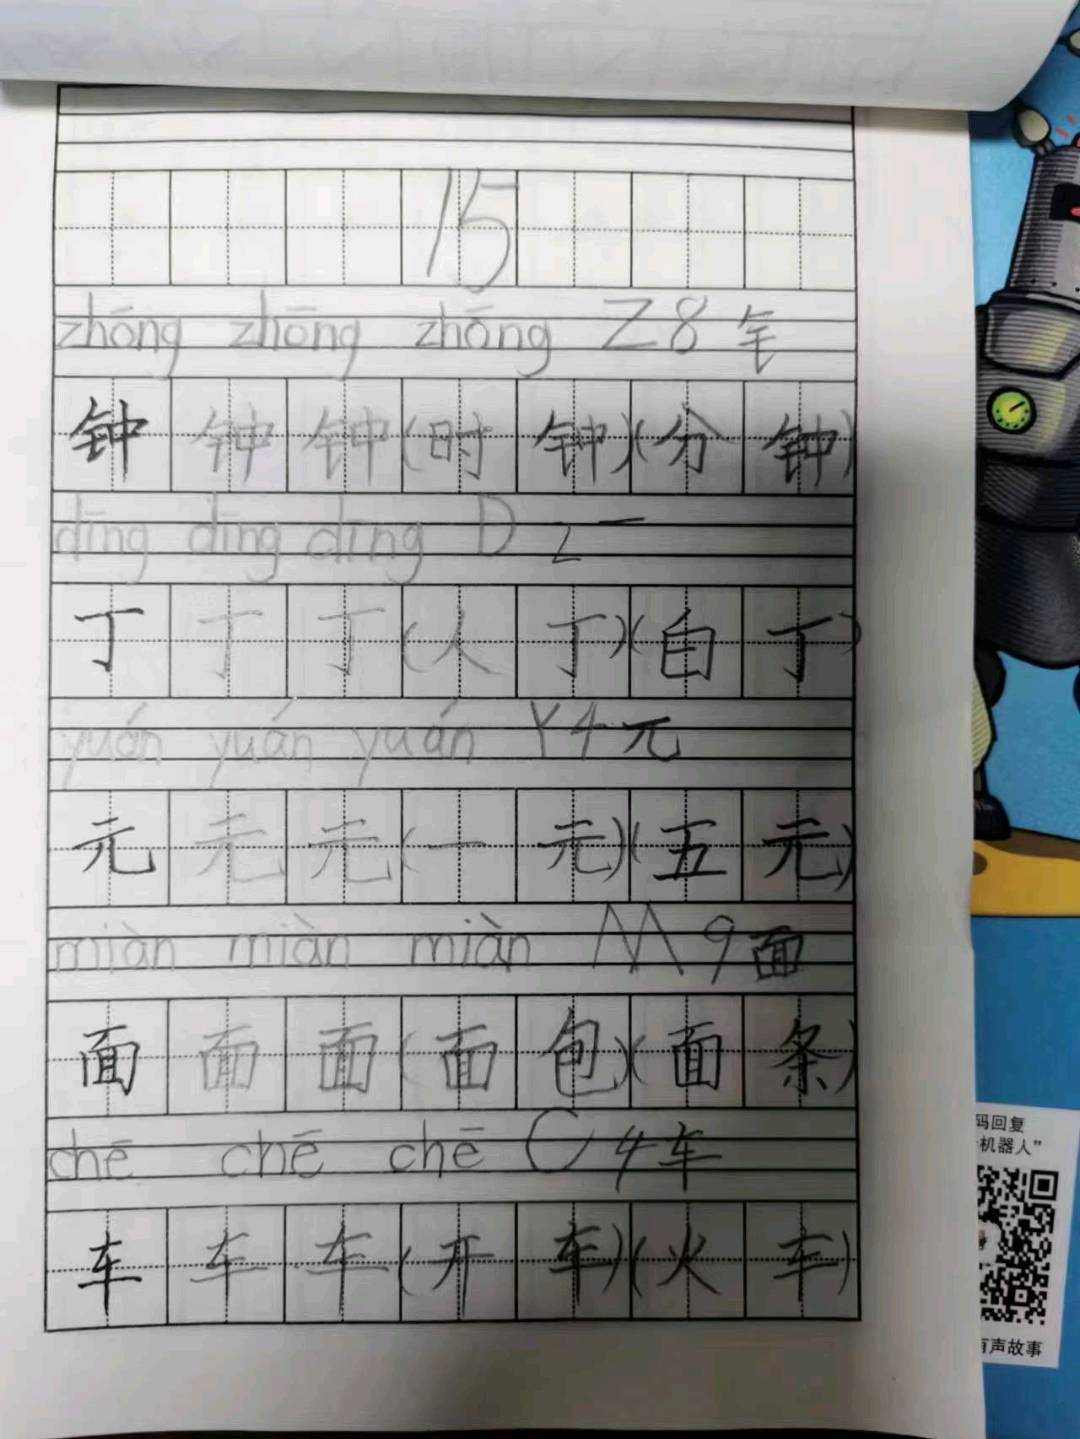 15
zhōng zhōng zhōng Z 8 钅
钟 钟 钟 (时 钟) (分 钟)
dīng dīng dīng D 2 一
丁 丁 丁 (人 丁) (白 丁)
yuán yuán yuán Y 4 元
元 元 元 (一 元) (五 元)
miàn miàn miàn M 9 面
面 面 面 (面 包) (面 条)
chē chē chē C 4 车
车 车 车 (开 车) (火 车)
码回复
机器人”
有声故事